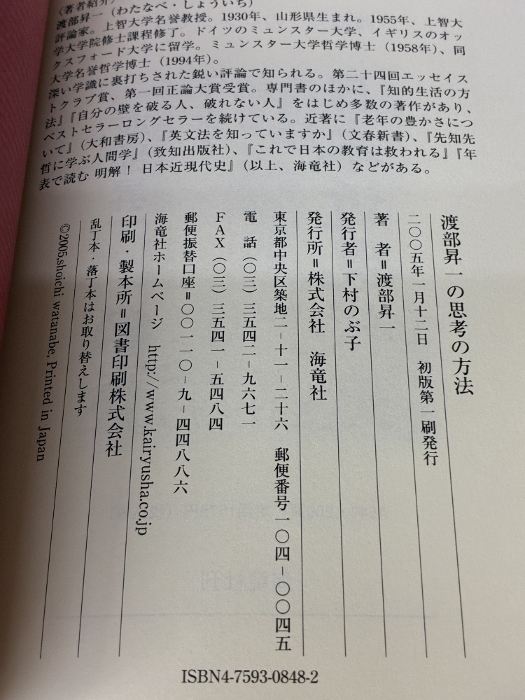 （著者紹介
渡部昇一（わたなべ・しょういち）
評論家。上智大学名誉教授。1930年、山形県生まれ。1955年、上智大
学大学院修士課程修了。ドイツのミュンスター大学、イギリスのオッ
クスフォード大学に留学。ミュンスター大学哲学博士（1958年）、同
大学名誉哲学博士（1994年）。
深い学識に裏打ちされた鋭い評論で知られる。第二十四回エッセイス
トクラブ賞、第一回正論大賞受賞。専門書のほかに、『知的生活の方
法』『自分の壁を破る人、破れない人』をはじめ多数の著作があり、
ベストセラーロングセラーを続けている。近著に『老年の豊かさにつ
いて』（大和書房）、『英文法を知っていますか』（文春新書）、『先知先
哲に学ぶ人間学』（致知出版社）、『これで日本の教育は救われる』『年
表で読む 明解！ 日本近現代史』（以上、海竜社）などがある。
渡部昇一の思考の方法
二〇〇五年一月十二日　初版第一刷発行
著　者＝渡部昇一
発行者＝下村のぶ子
発行所＝株式会社　海竜社
東京都中央区築地二－十一－二十六　郵便番号一〇四－〇〇四五
電　話（〇三）三五四二－九六七一
ＦＡＸ（〇三）三五四一－五四八四
郵便振替口座＝〇〇一一〇－九－四四八八六
海竜社ホームページ　http://www.kairyusha.co.jp
印刷・製本所＝図書印刷株式会社
乱丁本・落丁本はお取り替えします
©2005,shoichi watanabe, Printed in Japan
ISBN4-7593-0848-2